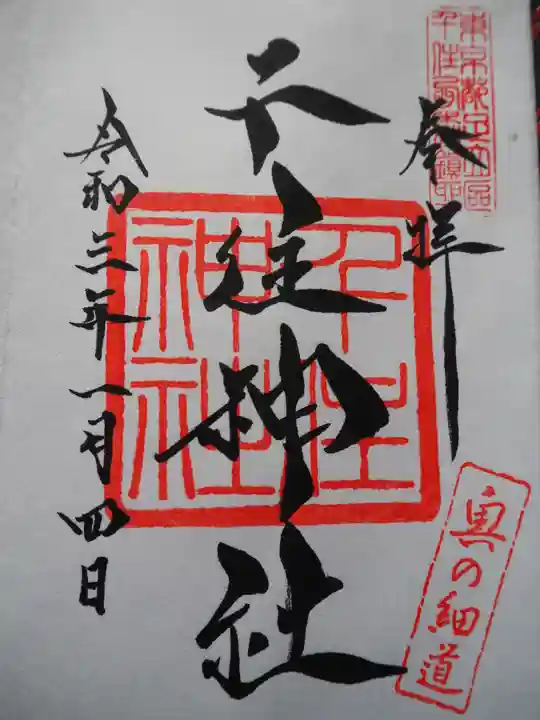 東京都足立區
千住宮元町鎮座
奉拝
千住神社
千住
神社
令和三年一月四日
奥の細道